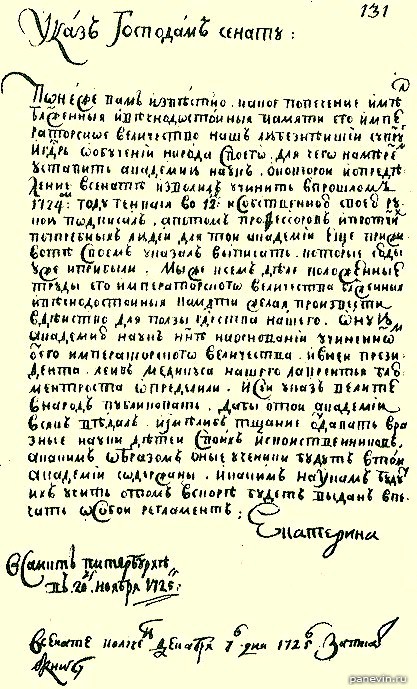 131
Указъ Господамъ сенату:
Понеже вамъ извѣстно. какое попечение имѣлъ
блаженныя и вѣчнодостойныя памяти его импе
раторское величество нашъ любезнѣишiи супру
и гдрь о обучениi народа своего. для чего намѣре
уставить академию наук. о которои и опредѣ
ление в сенатѣ изволилъ учинить в прошломъ
1724м: году генваря во 12: и собственною своею ру
кою подписалъ. а потомъ профессоровъ и протчи
потребныхъ людеи для тои академiи еще при жи
вотѣ своемъ указалъ выписать. которые сюды
уже и прибыли. Мы же все
труды его императорскаго величества блаженныя
и вѣчнодостоиныя памяти желая произвести
в дѣиство для ползы
академию наук ннѣ на основанiи учиненно
его императорского величества. и в неи прези
дента. леивъ медикуса нашего лаврентья блю
ментроста опредѣлили. И сеи указъ велите
в народъ публиковать. дабы о тои академiи
всякъ вѣдалъ. и имѣли б тщание отдавать в ра
зные науки дѣтеи своихъ и своиственниковъ
а какимъ образомъ оные ученики будутъ в тои
академiи содержаны. и какимъ наукамъ будуть
ихъ учить о томъ вскоре будетъ выданъ в пе
чать особои регламентъ:
Екатерина
В санктъ питербурхѣ
въ 20 ноября 1725:
В сенате получе декабря 7 дни 1725
panevin.ru